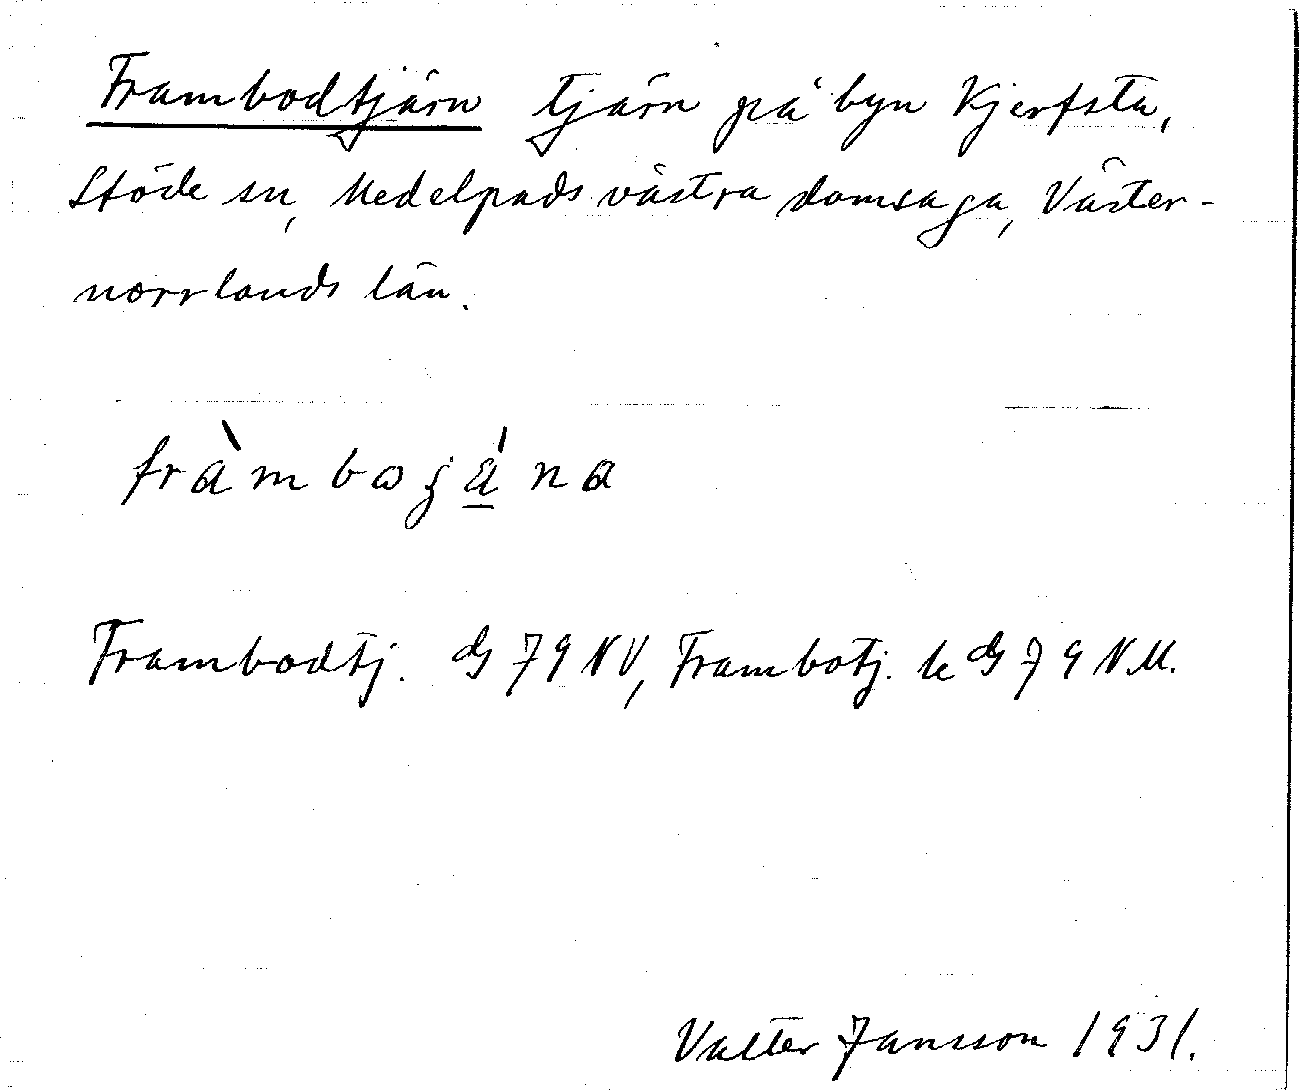 Frambodtjärn tjärn på byn Kjerfsta,
Stöde sn, Medelpads västra domsaga, Väster-
norrlands län.
Frambodtj. 79 NV, Frambotj. 79 NM.
Valter Jansson 1931.